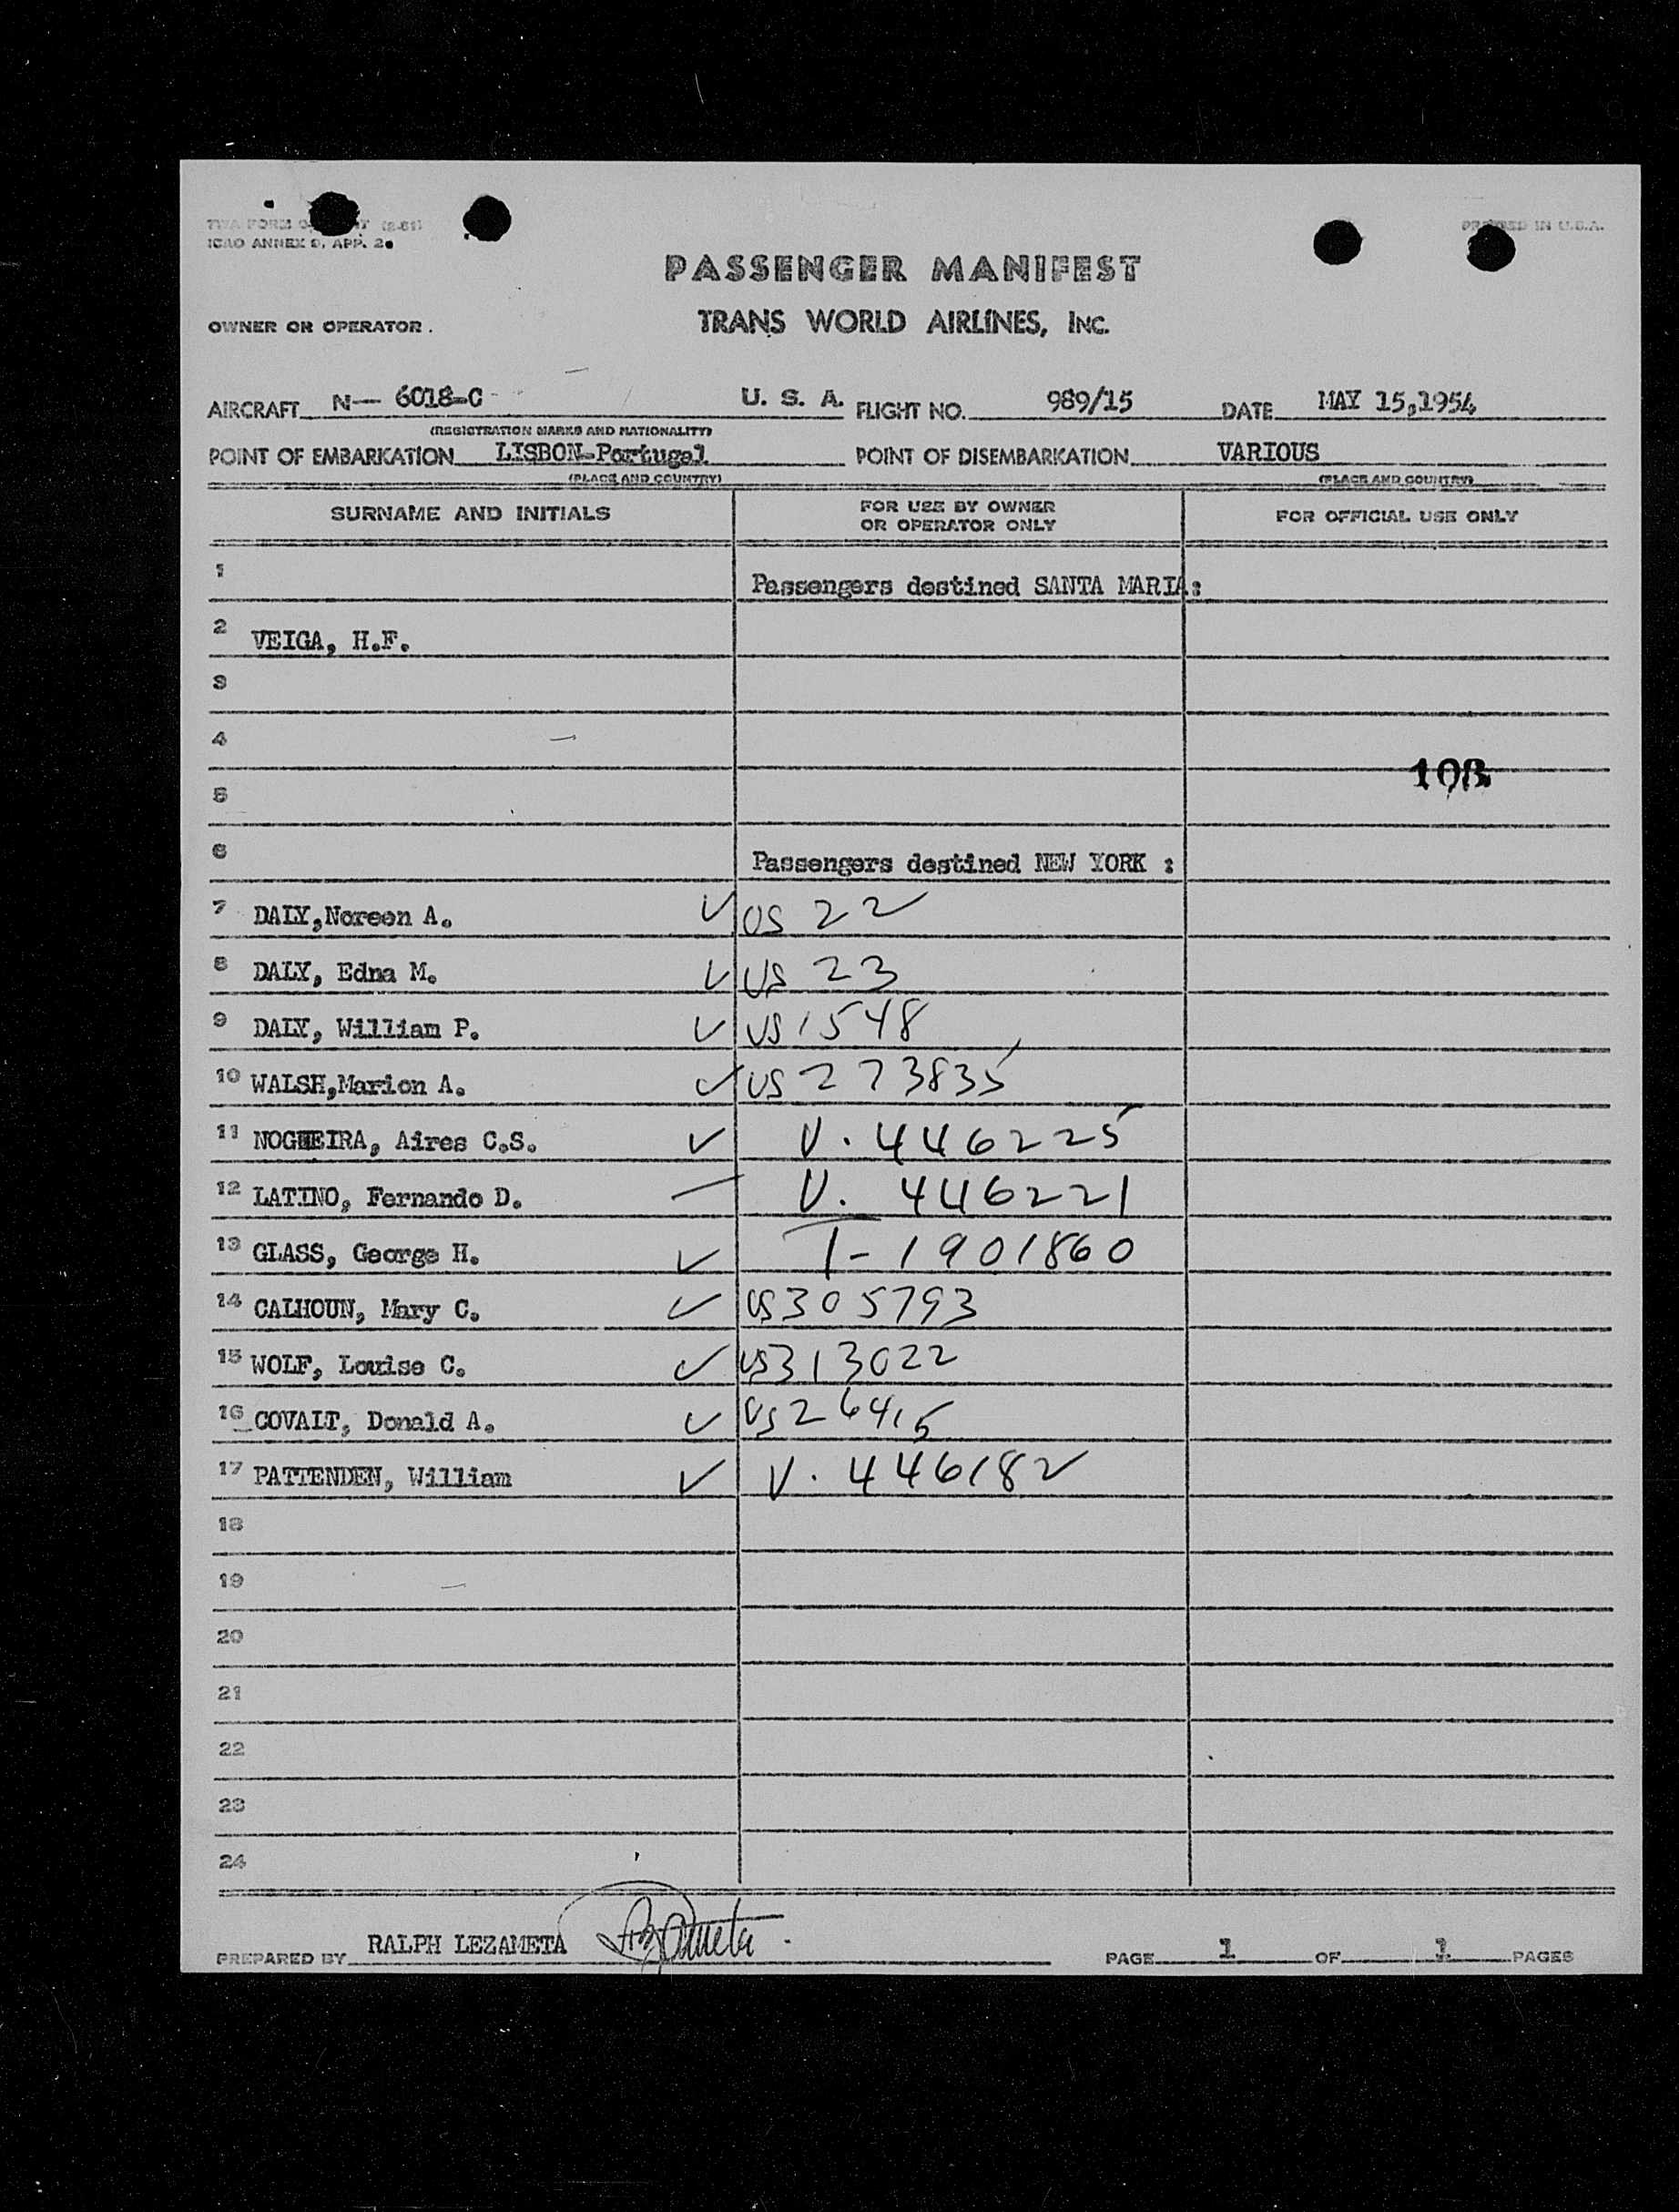 ICAO ANNEX 9, APP. 2
PRINTED IN U.S.A.
PASSENGER MANIFEST
OWNER OR OPERATOR . TRANS WORLD AIRLINES, INC.
AIRCRAFT N— 6018-C U. S. A. FLIGHT NO. 989/15 DATE MAY 15,1954
(REGISTRATION MARKS AND NATIONALITY)
POINT OF EMBARKATION LISBON-Portugal POINT OF DISEMBARKATION VARIOUS
(PLACE AND COUNTRY) (PLACE AND COUNTRY)
SURNAME AND INITIALS FOR USE BY OWNER OR OPERATOR ONLY FOR OFFICIAL USE ONLY
1 Passengers destined SANTA MARIA:
2 VEIGA, H.F.
3
4
5
6 Passengers destined NEW YORK :
7 DALY,Noreen A. ✓ US 22
8 DALY, Edna M. ✓ US 23
9 DALY, William P. ✓ US 1548
10 WALSH,Marion A. ✓ US 273835
11 NOGUEIRA, Aires C.S. ✓ V. 446225
12 LATINO, Fernando D. — V. 446221
13 GLASS, George H. ✓ T-1901860
14 CALHOUN, Mary C. ✓ US 305793
15 WOLF, Louise C. ✓ US 313022
16 COVALT, Donald A. ✓ US 26415
17 PATTENDEN, William ✓ V. 446182
18
19
20
21
22
23
24
PREPARED BY RALPH LEZAMETA PAGE 1 OF 1 PAGES